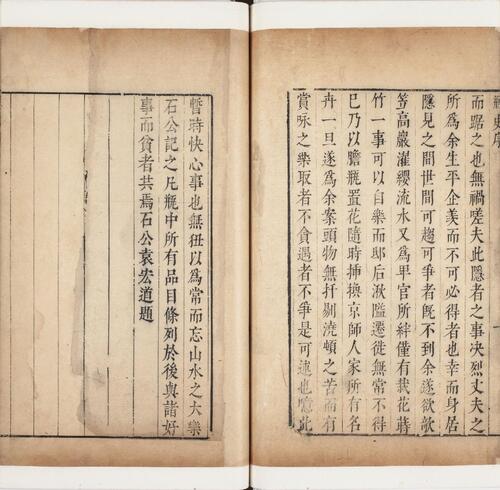 瓶史序
一
而踞之也無禍嗟夫此隱者之事決烈丈夫之
所為余生平企羨而不可必得者也幸而身居
隱見之間世間可趨可爭者旣不到余遂欲欹
笠高巖濯纓流水又為卑官所絆僅有栽花蒔
竹一事可以自樂而邸居湫隘遷徙無常不得
已乃以膽瓶置花隨時挿換京師人家所有名
卉一旦遂為余案頭物無扞剔澆頓之苦而有
賞咏之樂取者不貪遇者不爭是可述也噫此
暫時快心事也無狃以為常而忘山水之大樂
石公記之凡瓶中所有品目條列於後與諸好
事而貧者共焉石公袁宏道題